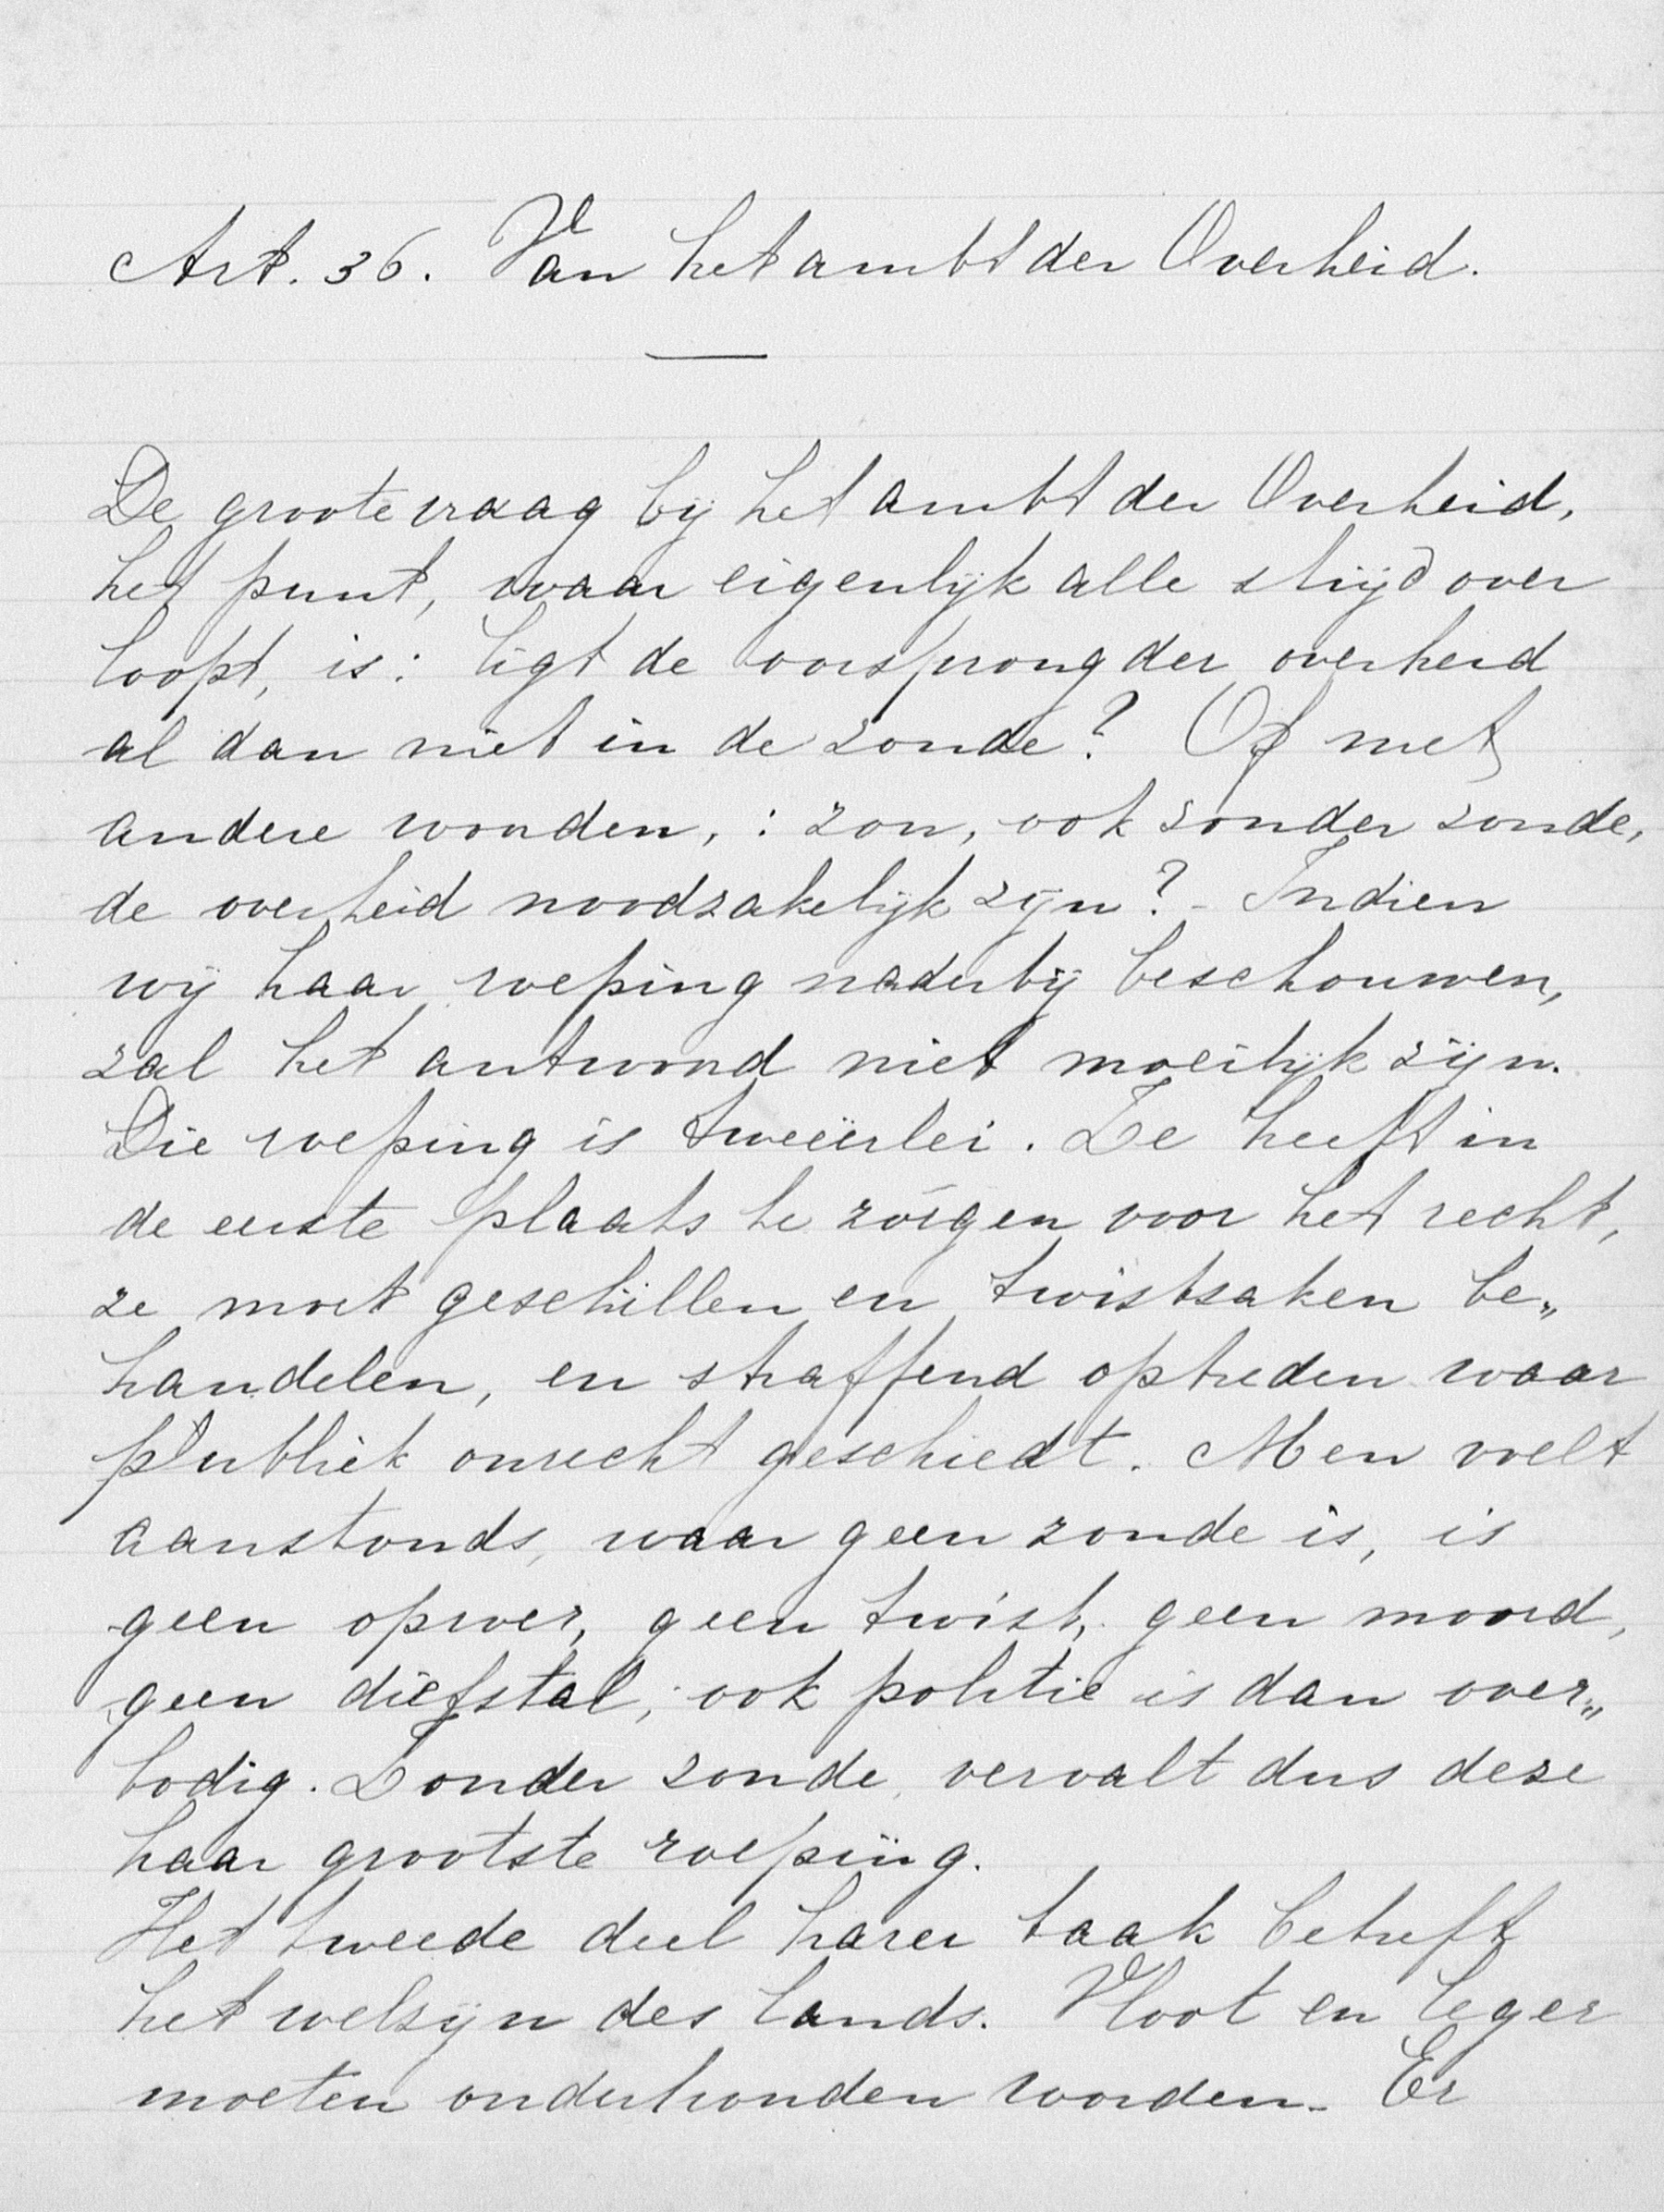 Art. 36. Van het ambt der Overheid.
De groote vraag bij het ambt der Overheid,
het punt, waar eigenlijk alle strijd over
loopt, is: ligt de oorsprong der overheid
al dan niet in de zonde? Of met
andere woorden,: zou, ook zonder zonde,
de overheid noodzakelijk zijn? - Indien
wij haar roeping naderbij beschouwen,
zal het antwoord niet moeilijk zijn.
Die roeping is tweeërlei. Ze heeft in
de eerste plaats te zorgen voor het recht,
ze moet geschillen en twistzaken be„
handelen, en straffend optreden waar
publiek onrecht geschiedt. Men voelt
aanstonds, waar geen zonde is, is
geen oproer, geen twist, geen moord,
geen diefstal; ook politie is dan over„
bodig. Zonder zonde, vervalt dus deze
haar grootste roeping.
Het tweede deel harer taak betreft
het welzijn des lands. Vloot en leger
moeten onderhouden worden. Er